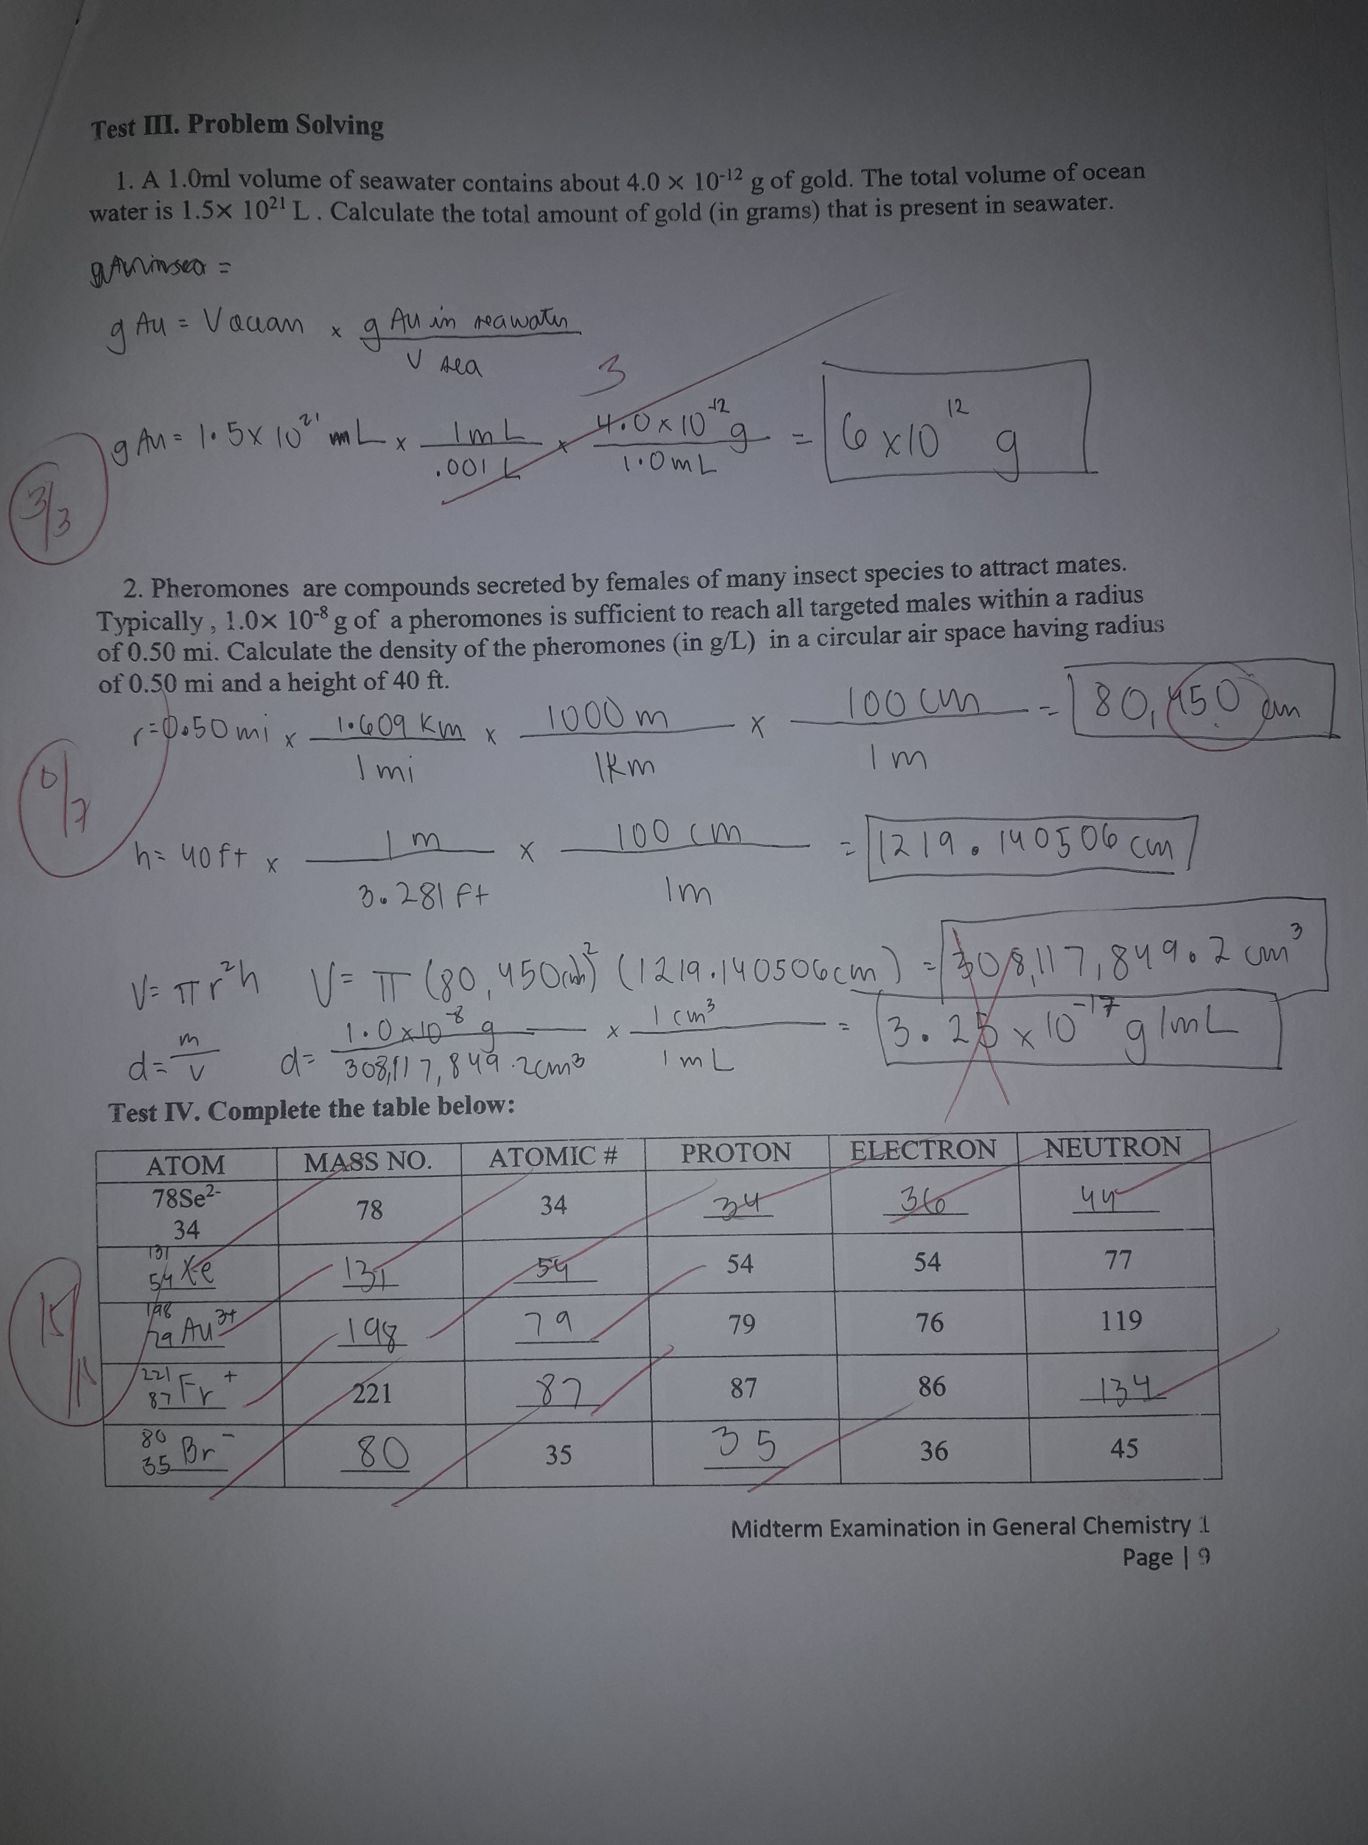 Test III. Problem Solving
1. A 1.0ml volume of seawater contains about 4.0 × 10⁻¹² g of gold. The total volume of ocean
water is 1.5× 10²¹ L . Calculate the total amount of gold (in grams) that is present in seawater.
g Au = V ocean × g Au in seawater
V sea
3
g Au = 1.5 x 10²¹ mL x 1mL x 4.0 x 10⁻¹² g = 6 x 10¹² g
.001 L 1.0 mL
3/3
2. Pheromones are compounds secreted by females of many insect species to attract mates.
Typically , 1.0× 10⁻⁸ g of a pheromones is sufficient to reach all targeted males within a radius
of 0.50 mi. Calculate the density of the pheromones (in g/L) in a circular air space having radius
of 0.50 mi and a height of 40 ft.
r=0.50 mi x 1.609 Km x 1000 m x 100 cm = 80,450 cm
1 mi 1km 1 m
/7
h= 40 ft x 1 m x 100 cm = 1219.140506 cm
3.281 ft 1m
V= πr²h V= π (80,450cm)² (1219.140506cm) = 308,117,849.2 cm³
d= m d= 1.0x10⁻⁸ g x 1 cm³ = 3.25 x 10⁻¹⁷ g/mL
v 308,117,849.2cm3 1 mL
Test IV. Complete the table below:
ATOM MASS NO. ATOMIC # PROTON ELECTRON NEUTRON
78Se²⁻ 78 34 34 36 44
34
131
54 Xe 131 54 54 54 77
198
79 Au³⁺ 198 79 79 76 119
221
87 Fr⁺ 221 87 87 86 134
80
35 Br⁻ 80 35 35 36 45
15/
Midterm Examination in General Chemistry 1
Page | 9